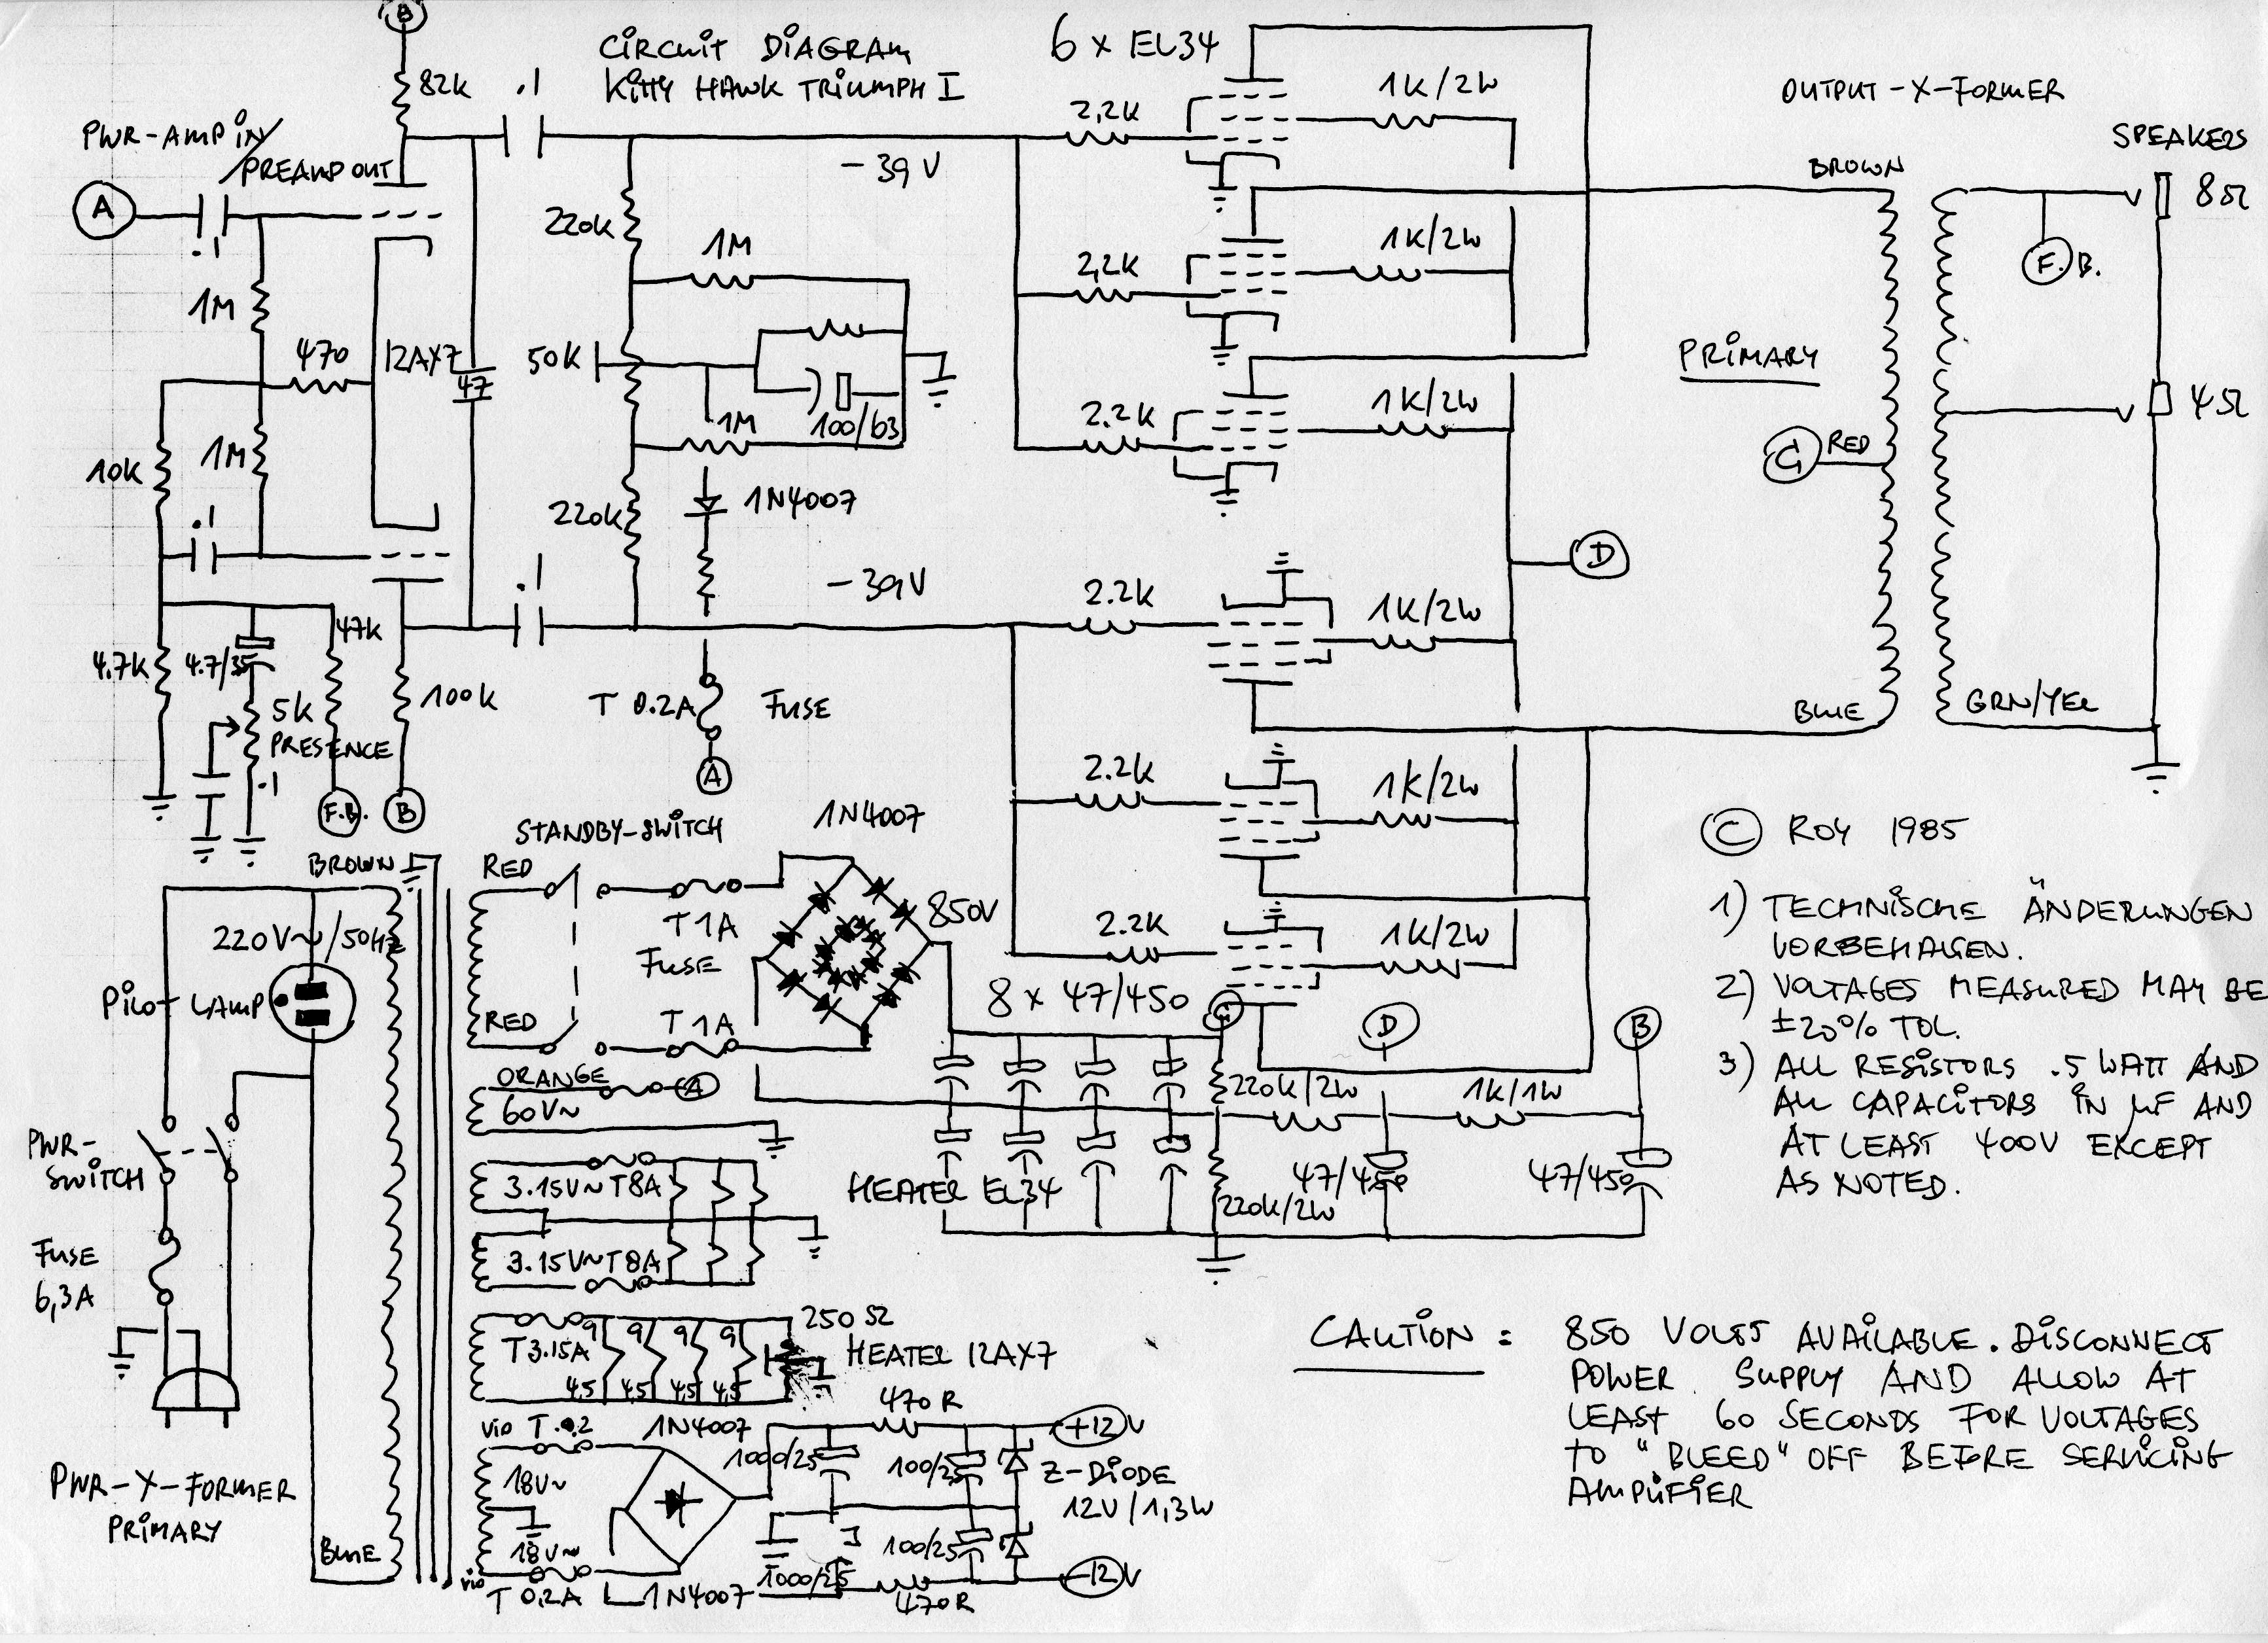 B
CIRCUIT DIAGRAM
KITTY HAWK TRIUMPH I
6 x EL34
OUTPUT-X-FORMER
SPEAKERS
82K
.1
2,2K
1K/2W
PWR-AMP IN/
PREAMP OUT
-39V
BROWN
8Ω
A
.1
220K
1M
2,2K
1K/2W
F.B.
1M
470
12AX7
47
50K
PRIMARY
1M
100/63
2.2K
1K/2W
4Ω
10K
1M
G
RED
.1
220K
1N4007
D
.1
-39V
2.2K
1K/2W
47K
4.7K
4.7/35
5K
PRESENCE
.1
100K
T 0.2A
FUSE
A
BLUE
GRN/YEL
F.B.
B
2.2K
1K/2W
STANDBY-SWITCH
1N4007
BROWN
RED
© ROY 1985
220V~/50Hz
T1A
FUSE
850V
2.2K
1K/2W
PILOT LAMP
RED
T1A
8 x 47/450
D
B
1) TECHNISCHE ÄNDERUNGEN
VORBEHALGEN.
2) VOLTAGES MEASURED MAY BE
±20% TOL.
3) ALL RESISTORS .5 WATT AND
ALL CAPACITORS IN µF AND
AT LEAST 400V EXCEPT
AS NOTED.
ORANGE
A
60V~
220K/2W
1K/1W
PWR-
SWITCH
3.15V~T8A
HEATER EL34
220K/2W
47/450
47/450
FUSE
6,3A
3.15V~T8A
T3.15A
9 9 9 9
4,5 4,5 4,5 4,5
250Ω
HEATER 12AX7
CAUTION: 850 VOLTS AVAILABLE. DISCONNECT
POWER SUPPLY AND ALLOW AT
LEAST 60 SECONDS FOR VOLTAGES
TO "BLEED" OFF BEFORE SERVICING
AMPLIFIER
vio T.0.2
1N4007
470R
+12V
1000/25
100/25
Z-DIODE
12V/1,3W
18V~
PWR-X-FORMER
PRIMARY
BLUE
18V~
100/25
vio
T 0,2A
1N4007
1000/25
470R
-12V